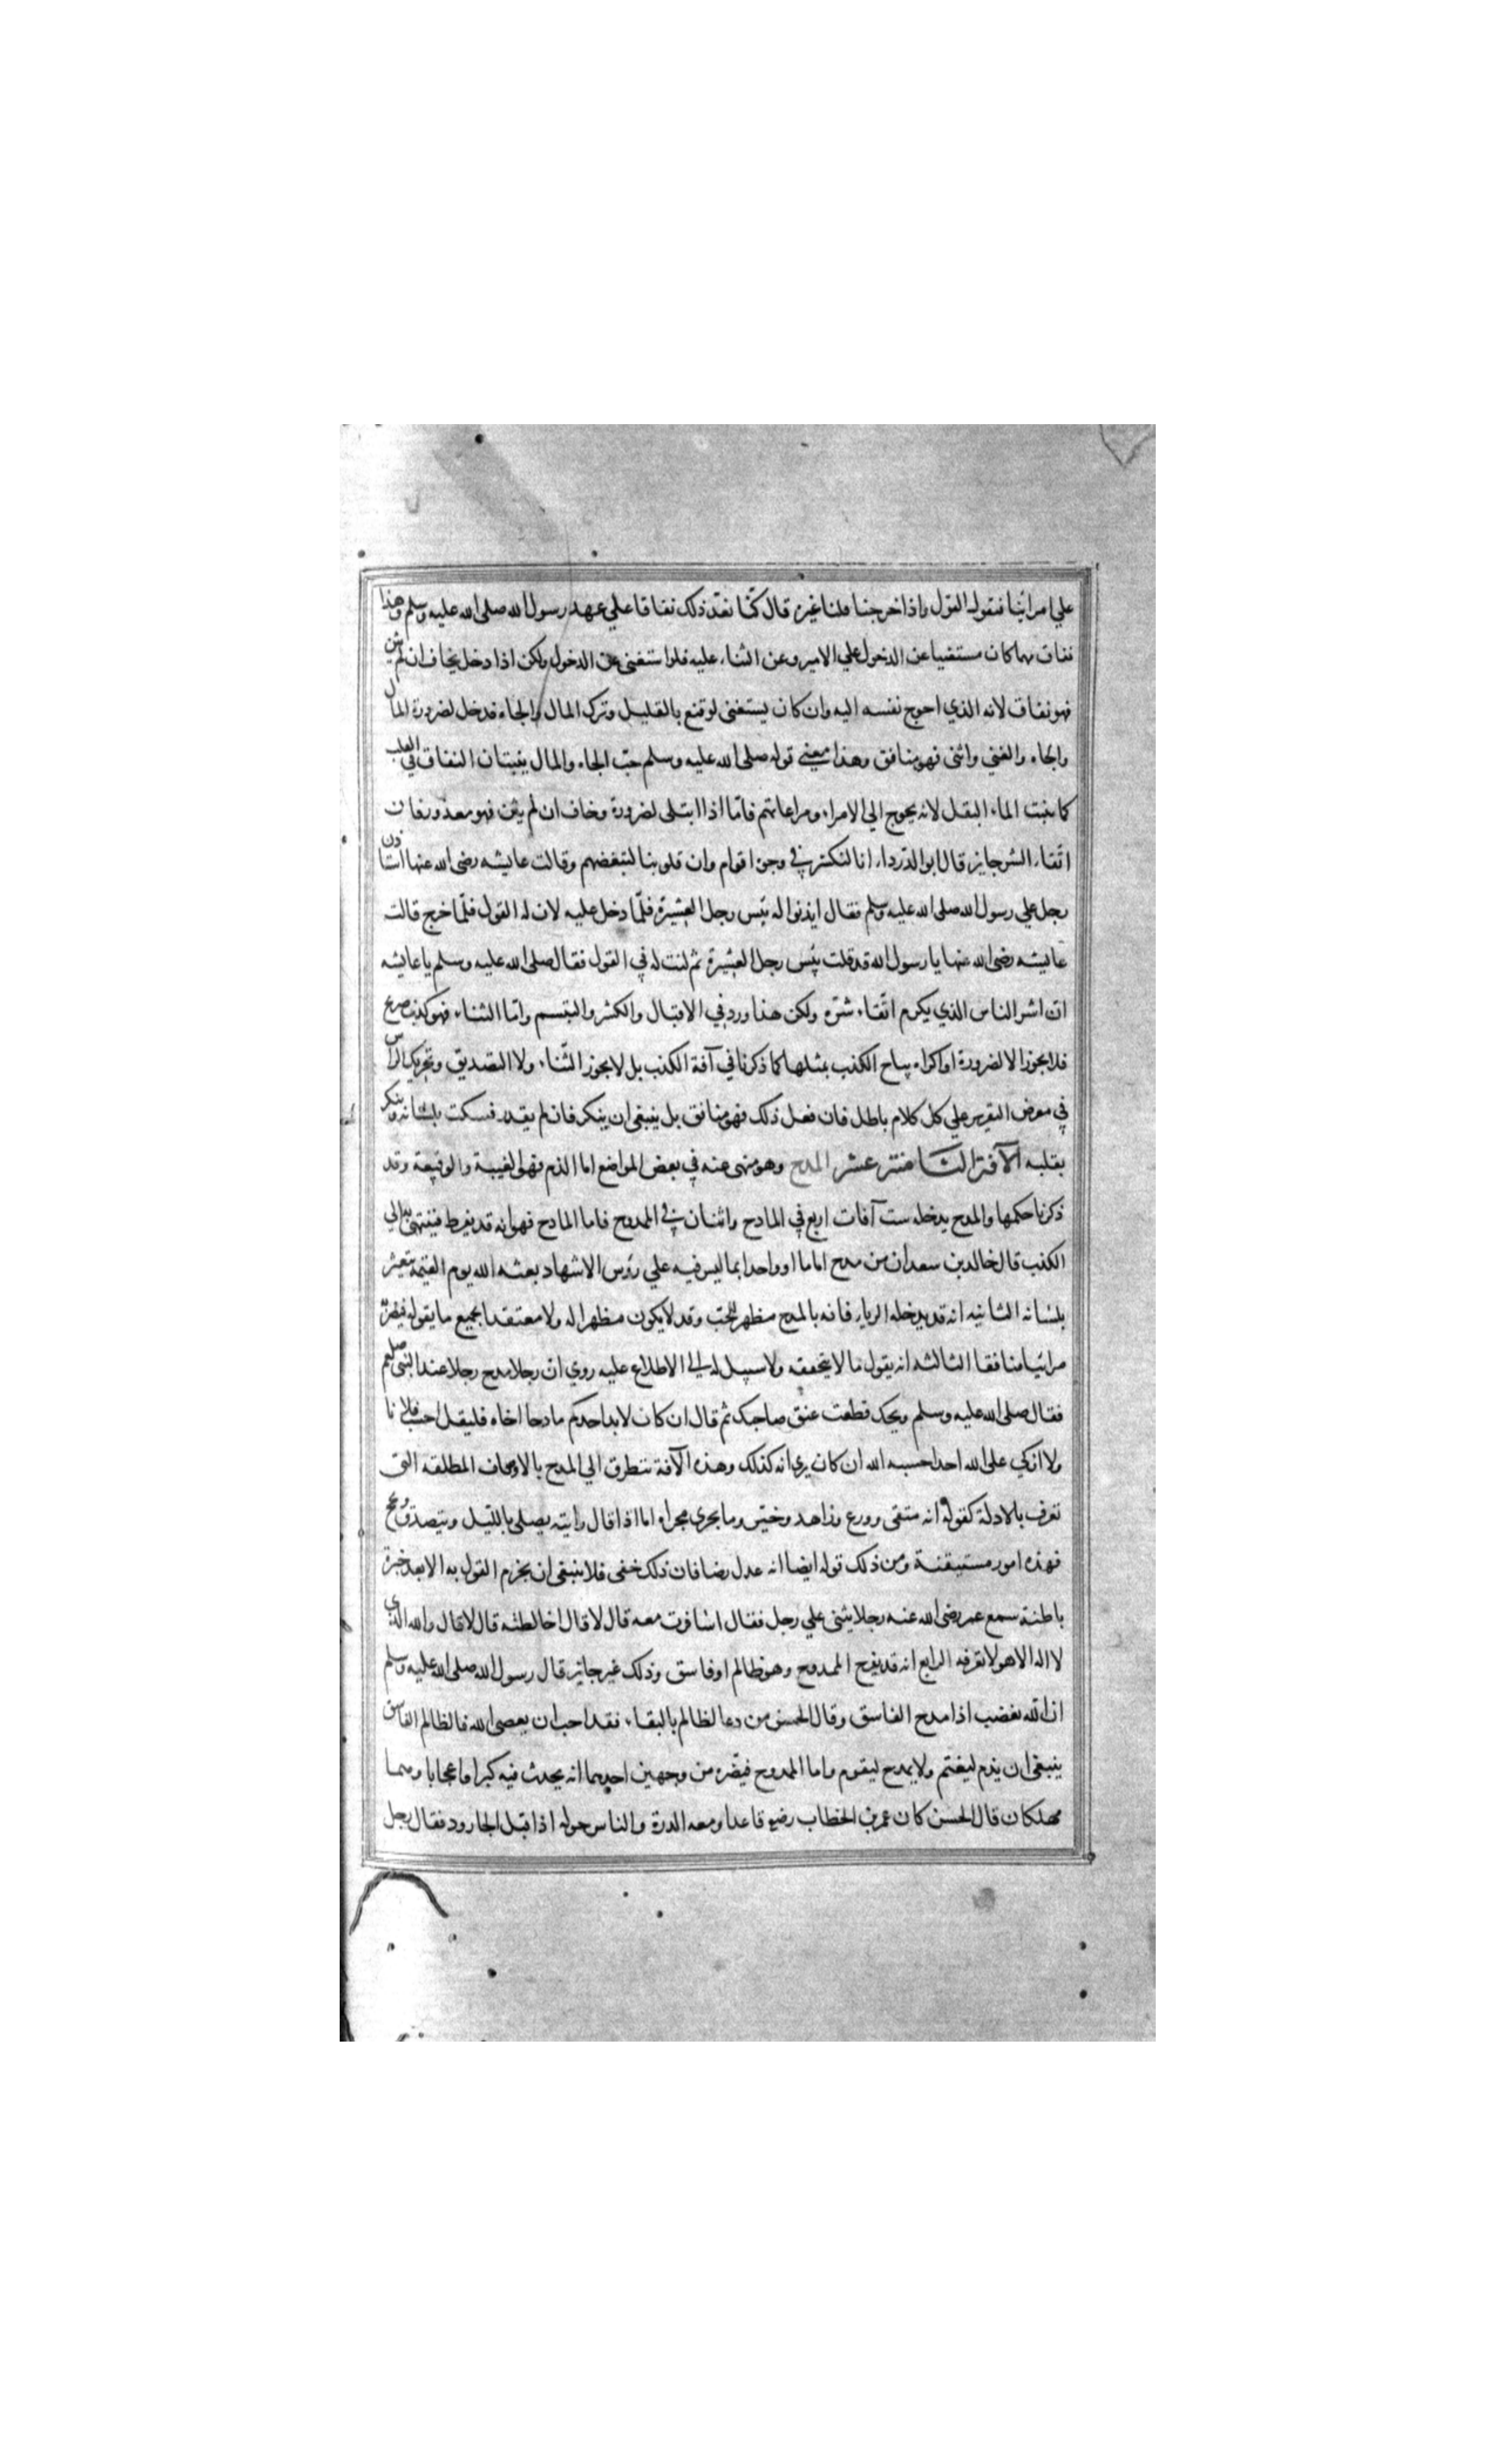 علي امرائنا فنقول القول واذا خرجنا قلنا غيره قال كنّا نعدّ ذلك نفاقا علي عهد رسول الله صلى الله عليه وسلم وهذا
نفاق مهما كان مستغنيا عن الدخول علي الامير وعن الثناء عليه فلو استغنى عن الدخول ولكن اذا دخل يخاف ان لم يثن
فهو نفاق لانه الذي احوج نفسه اليه وان كان يستغنى لو قنع بالقليل وترك المال والجاه فدخل لضرورة المال
والجاه والغني واثنى فهو منافق وهذا معنى قوله صلى الله عليه وسلم حبّ الجاه والمال ينبتان النفاق في القلب
كما ينبت الماء البقل لانه يحوج الي الامراء ومراعاتهم فامّا اذا ابتلى لضرورة وخاف ان لم يثن فهو معذور فان
اتّقاء الشر جايز قال ابو الدّرداء انا لنكشر في وجوه اقوام وان قلوبنا لتبغضهم وقالت عايشه رضى الله عنها استاذن
رجل علي رسول الله صلى الله عليه وسلم فقال ايذنوا له بئس رجل العشيرة فلمّا دخل عليه لان له القول فلمّا خرج قالت
عايشه رضى الله عنها يا رسول الله قد قلت بئس رجل العشيرة ثم لنت له في القول فقال صلى الله عليه وسلم يا عايشه
انّ اشر الناس الذي يكرم اتّقاء شرّه ولكن هذا ورد في الاقبال والكشر والتبسم وامّا الثناء فهو كذب صريح
فلا يجوز الا لضرورة او اكراه يباح الكذب بمثلها كما ذكرنا في آفة الكذب بل لا يجوز الثّناء ولا التصديق وتحريك الراس
في معرض التقرير علي كل كلام باطل فان فعل ذلك فهو منافق بل ينبغى ان ينكر فان لم يقدر فيسكت بلسانه وينكر
بقلبه الآفة الثامنة عشر المدح وهو منهى عنه في بعض المواضع اما الذم فهو الغيبة والوقيعة وقد
ذكرنا حكمها والمدح يدخله ست آفات اربع في المادح واثنان في الممدوح فاما المادح فهو انه قد يفرط فينتهى به الي
الكذب قال خالد بن سعدان من مدح اماما او واحدا بما ليس فيه علي رؤس الاشهاد بعثه الله يوم القيمة يتعثر
بلسانه الثانيه انه قد يدخله الرياء فانه بالمدح مظهر للحبّ وقد لا يكون مظهرا له ولا معتقدا بجميع ما يقوله فيصير
مرائيا منافقا الثالثه انه يقول ما لا يتحققه ولا سبيل له الي الاطلاع عليه روي انّ رجلا مدح رجلا عند النبى صلعم
فقال صلى الله عليه وسلم ويحك قطعت عنق صاحبك ثم قال ان كان لابد احدكم مادحا اخاه فليقل احسب فلانا
ولا ازكي على الله احدا حسيبه الله ان كان يري انه كذلك وهذه الآفة تتطرق الي المدح بالاوصاف المطلقه التى
تعرف بالادلة كقوله انه متقى وورع وزاهد وخيّر وما يجري مجراه اما اذا قال رايته يصلى بالليل ويتصدق ويحج
فهذه امور مستيقنة ومن ذلك قوله ايضا انه عدل رضا فان ذلك خفى فلا ينبغى ان يجزم القول به الا بعد خبرة
باطنة سمع عمر رضى الله عنه رجلا يثنى علي رجل فقال اسافرت معه قال لا قال اخالطته قال لا قال والله الذي
لا اله الا هو لا تعرفه الرابع انه قد يفرح الممدوح وهو ظالم او فاسق وذلك غير جايز قال رسول الله صلى الله عليه وسلم
ان الله يغضب اذا مدح الفاسق وقال الحسن من دعا لظالم بالبقاء فقد احب ان يعصى الله فالظالم الفاسق
ينبغى ان يذم ليغتم ولا يمدح ليقوم واما الممدوح فيضره من وجهين احدهما انه يحدث فيه كبرا واعجابا وهما
مهلكان قال الحسن كان عمر بن الخطاب رضيه قاعدا ومعه الدرة والناس حوله اذا قبل الجارود فقال رجل